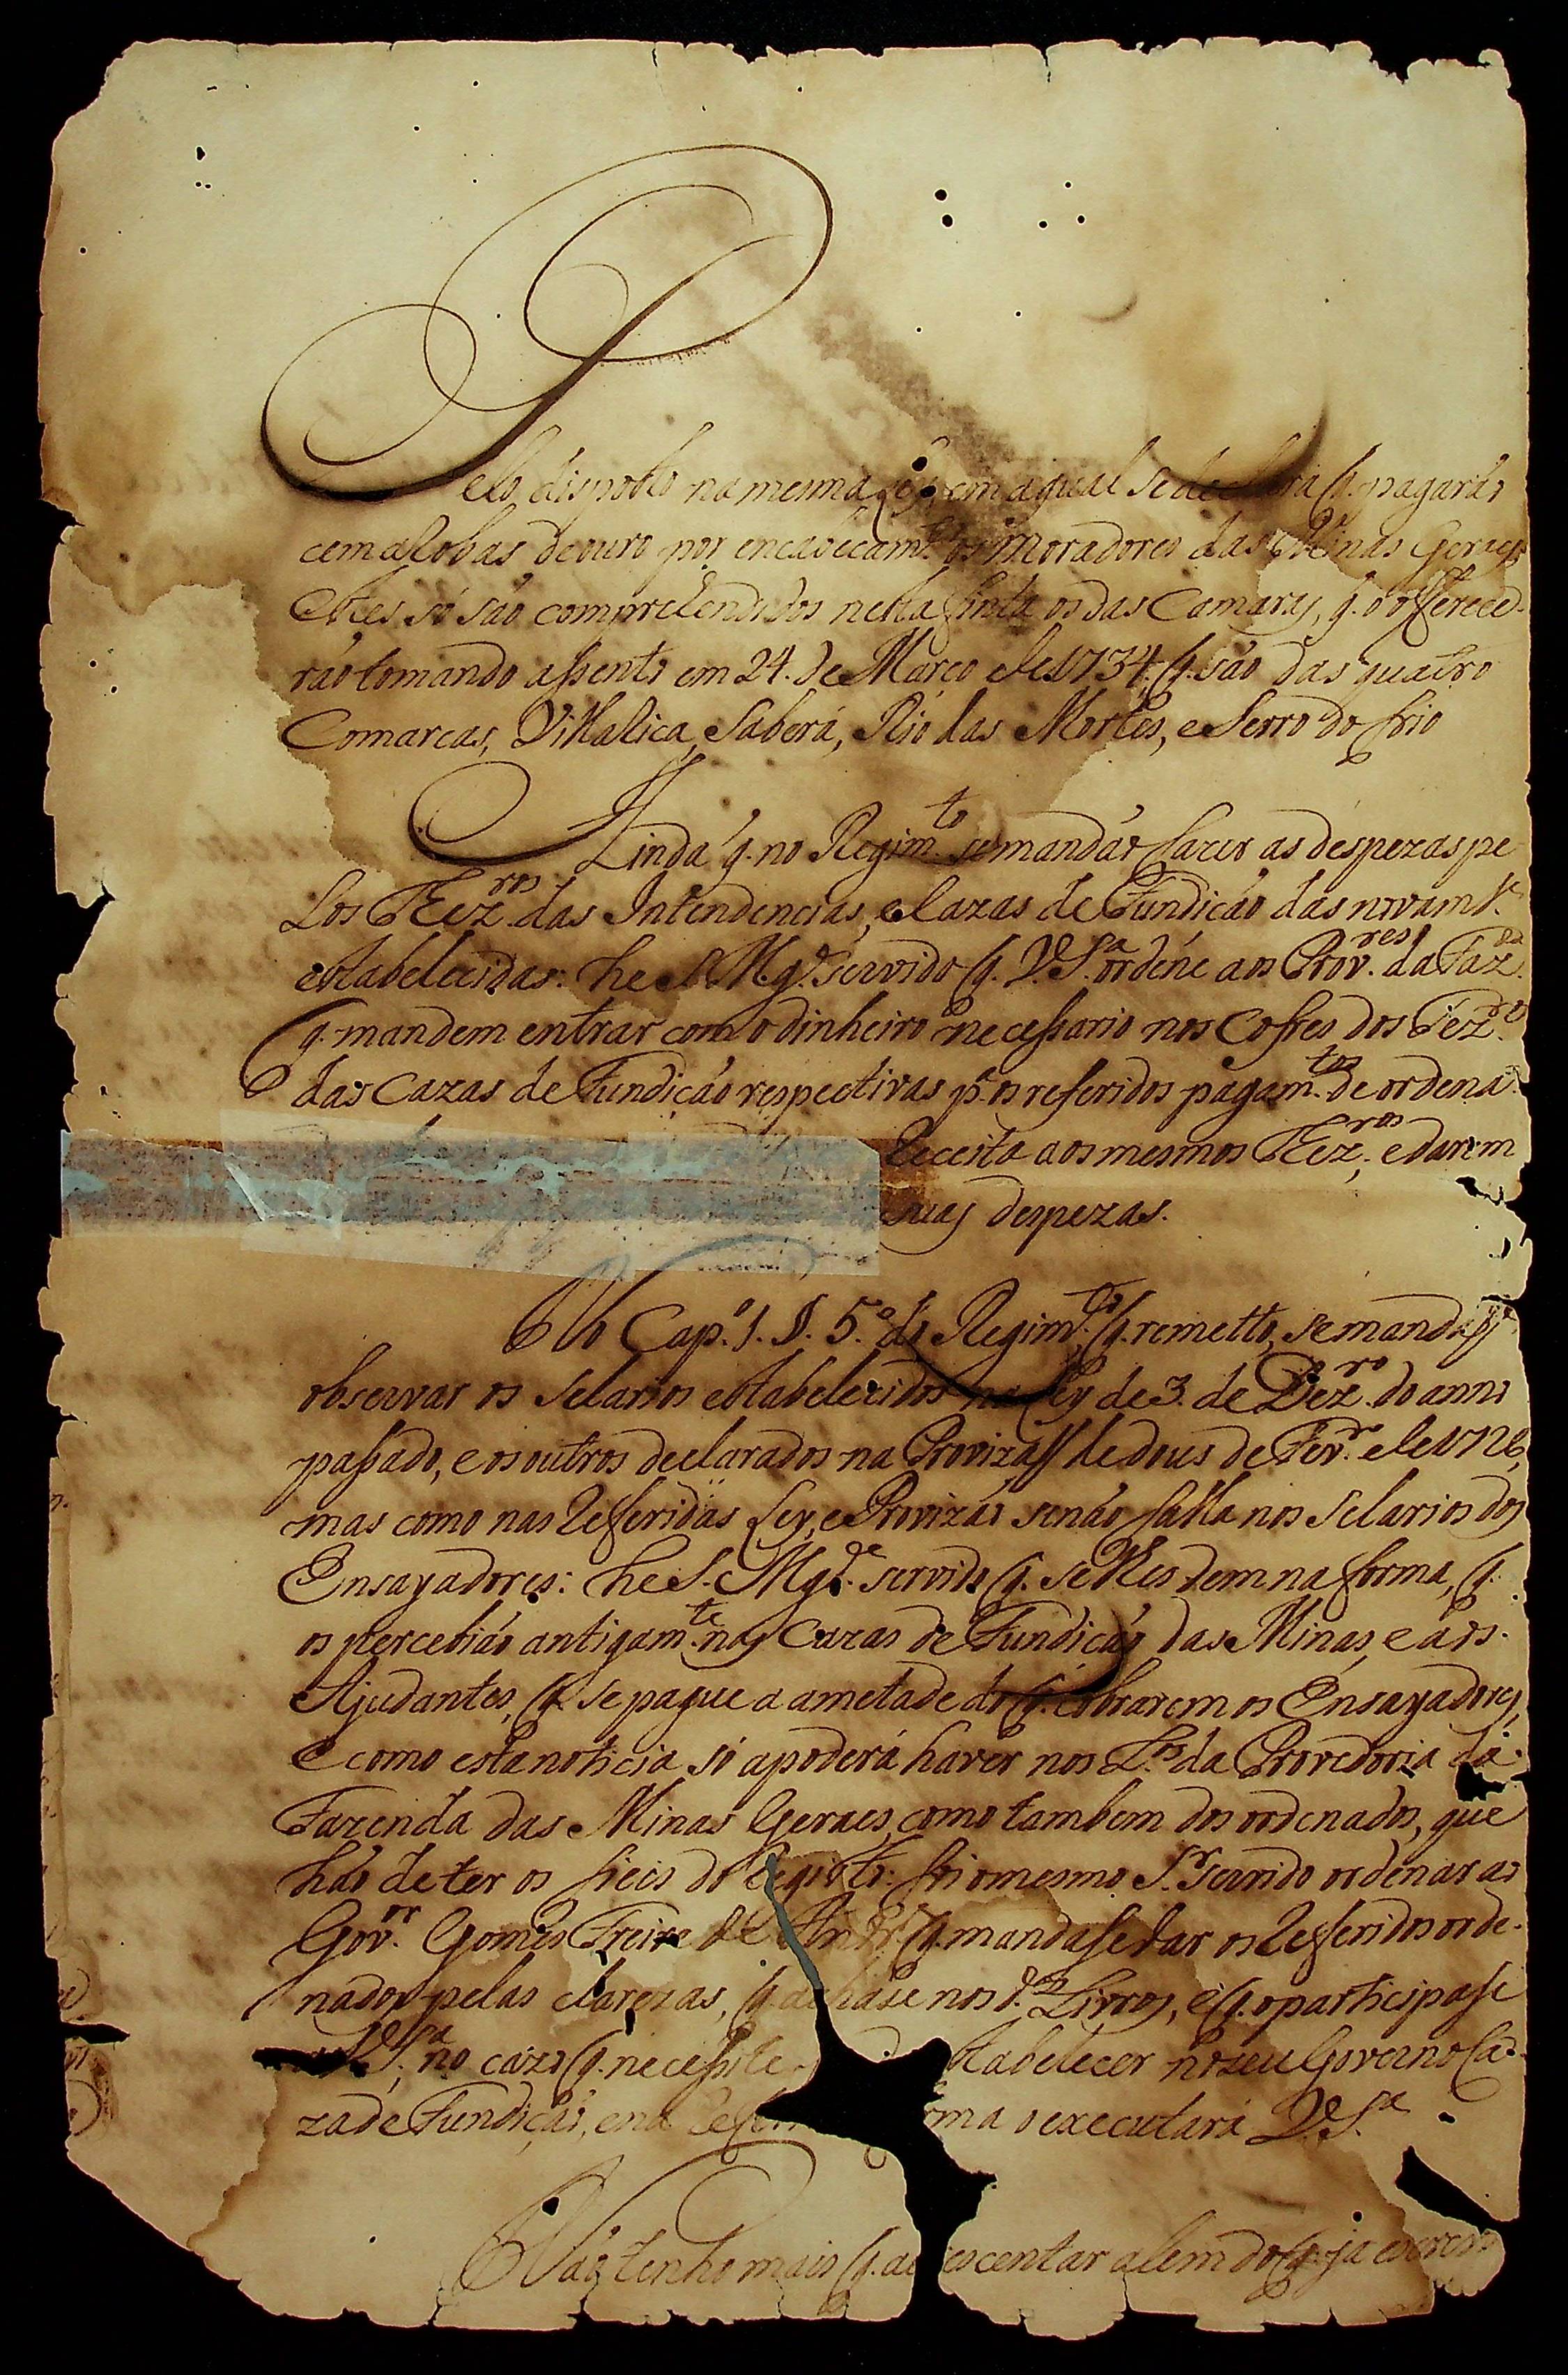 Pelo disposto na mesma Ley, em a qual se declara q. pagarás
cem arobas de ouro por encabeçam.to os moradores das Minas Geraes
Eles só são comprehendidos nesta finta os das Comarcas, q. o offerece-
rão tomando assento em 24. de Março de 1734, q. são das quatro
Comarcas, Villa Rica, Sabará, Rio das Mortes, e Serro do frio
Ainda q. no Regim.to se mandár fazer as despezas pe
los Tez.ros das Intendencias, e Cazas de Fundição das novam.te
establecidas: he S. Mg.de servido q. V.S.a ordene aos Prov.res da Faz.da
q. mandem entrar com o dinheiro necessario nos Cofres dos Tez.ros
das Cazas de Fundição respectivas p.a os referidos pagam.tos de ordena-
Receita aos mesmos Tez.ros, e darem
suas despezas.
No Cap.o 1. §. 5.o do Regim.to q. remetto, se manda
observar os selarios establecidos na Ley de 3. de Dez.ro do anno
passado, e os outros declarados na Provizaõ de dous de Fev.ro de 1726,
mas como nas Referidas Ley, e Provizaõ se naõ falla nos Selarios dos
Ensayadores: he S. Mg.de servido q. se lhes dem na forma, q.
os percebiáo antigam.te nas Cazas de Fundiçaõ das Minas, e aos
Ajudantes, q. se pague a ametade do q. cobrarem os Ensayadores,
E como esta noticia só a poderá haver nos L.os da Provedoria da
Fazenda das Minas Geraes, como tambem dos ordenados, que
háo de ter os fieis do Registo: foi o mesmo S.r servido ordenar ao
Gov.or Gomes Freire de Andr.e q. mandase dar os Referidos orde-
nados pelas clarezas, q. achase nos d.os Livros, e q. o participase
V.S.a, no cazo q. necessite stabelecer no seu Governo Ca-
za de Fundiçaõ, e na rma o executará V.S.a
Naõ tenho mais q. acrescentar alem do q. ja escrevo